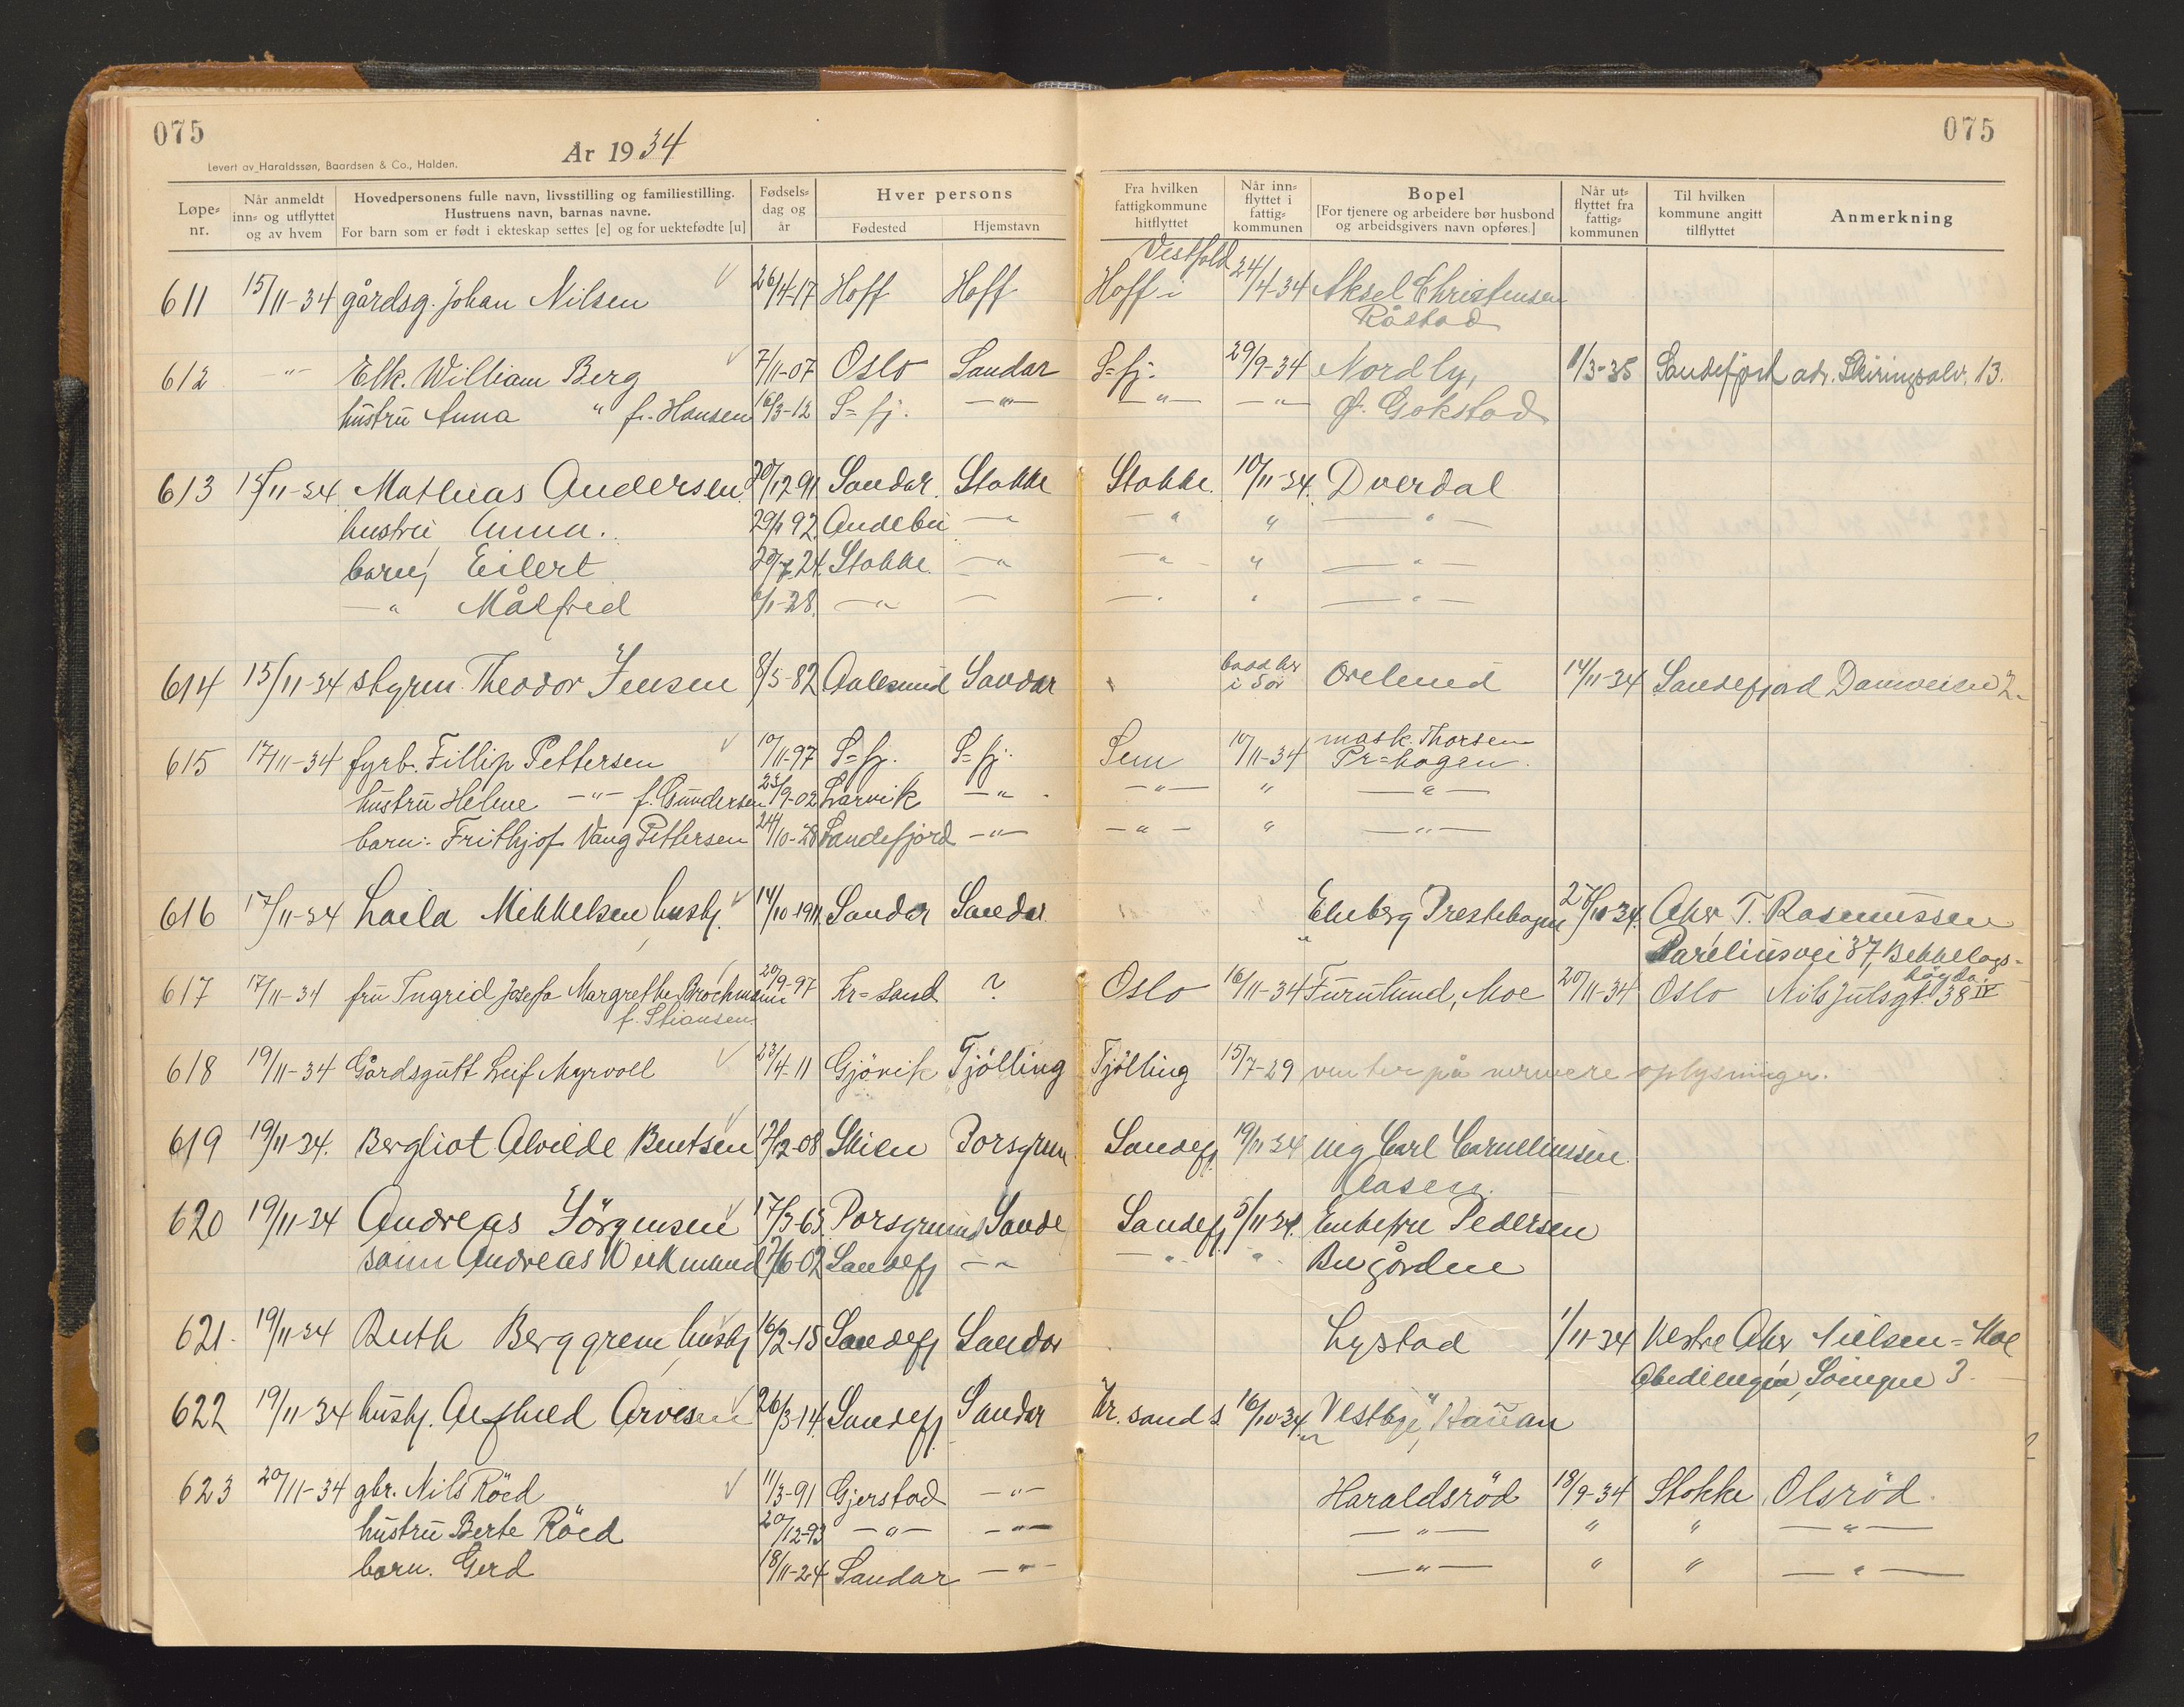 075
075
Levert av Haraldssøn, Baardsen & Co., Halden.
År 1934
Løpe-nr.
Når anmeldt inn- og utflyttet og av hvem
Hovedpersonens fulle navn, livsstilling og familiestilling.
Hustruens navn, barnas navne.
For barn som er født i ekteskap settes [e] og for uektefødte [u]
Fødselsdag og år
Hver persons
Fødested
Hjemstavn
Fra hvilken fattigkommune hitflyttet
Når innflyttet i fattigkommunen
Bopel
[For tjenere og arbeidere bør husbond og arbeidsgivers navn opføres.]
Når utflyttet fra fattigkommunen
Til hvilken kommune angitt tilflyttet
Anmerkning
611 15/11-34 gårdsg. Johan Nilsen 26/4-17 Hoff Hoff Hoff i Vestfold 24/4-34 Aksel Christensen
Råstad
612 -"- Elk. William Berg 7/11-07 Oslo Sandar S=fj. 29/9-34 Nordly, 11/3-35 Sandefjord adr. Skiringsalv. 13.
hustru Anna " f. Hansen 16/3-12 S=fj. -"- -"- -"- Ø. Gokstad
613 15/11-34 Mathias Andersen 20/12 91 Sandar Stokke Stokke 10/11-34 Dverdal
hustru Anna. 29/1 92 Andebu -"- -"- " -"-
barn, Eilert 20/7 24 Stokke -"- -"- " -"-
-"- Målfred 6/1-28 -"- - -"- " -"-
614 15/11-34 styrm. Theodor Jensen 8/5-82 Aalesund Sandar " bodd her i 5 år Ørelund 14/11-34 Sandefjord Damveien 2.
615 17/11-34 fyrb. Fillip Pettersen 10/11-97 S=fj. S=fj. Sem 10/11-34 mask. Thorsen
Pr=hagen.
hustru Helene -"- f. Gundersen 25/9-02 Larvik -"- -"- " -"-
barn: Frithjof Vang Pettersen 24/10-28 Sandefjord -"- -"- " -"-
616 17/11-34 Laila Mikkelsen hushj. 14/10-1911 Sandar Sandar Ekeberg Prestehagen 27/10-34 Aker T. Rasmussen
Pareliusvei 37, Bekkelagshøgda
617 17/11-34 fru Ingrid Josefa Margrethe Brochmann 20/9-97 Kr=sand ? Oslo 16/11-34 Furulund, Moe 20/11-34 Oslo Nils Julsgt. 38 IV
f. Stiansen
618 19/11-34 Gårdsgutt Leif Myrvoll 23/4-11 Gjövik Tjölling Tjölling 15/7-29 venter på nærmere oplysninger.
619 19/11-34. Bergliot Alvilde Bentsen 13/12-08 Skien Porsgrun Sandefj. 19/11 34 Carl Corneliussen
Aasen.
620 19/11-34 Andreas Jörgensen 17/3-63 Porsgrund Sande Sandefj 5/11-34 Enkefru Pedersen
sönn Andreas Wikmund 7/6-02 Sandefj -"- -"- " Bugården
621. 19/11-34 Ruth Berggren hushj 16/2-15 Sandefj Sandar Lystad 1/11-34 Vestre Aker Nielsen=Moe
3.
622 19/11-34 hushj. Arvesen 26/3-14 Sandefj Sandar Kr.sand S 16/10-34 "Vestbye", Haüan
623 20/11-34 gbr. Nils Röed 11/3-91 Gjerstad -"- Haraldsröd 18/9-34 Stokke Olsröd.
hustru Berte Röed 20/12-93 -"- -"- -"- " " -"-
barn. Gerd 18/11-24 Sandar -"- -"- " " -"-